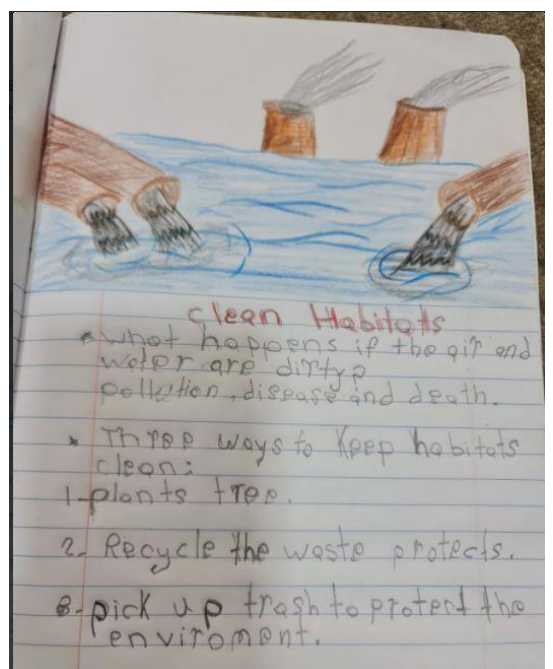 clean Habitats
• what happens if the air and
water are dirty?
pollution, disease and death.
• Three ways to keep habitats
clean:
1-plants tree.
2- Recycle the waste protects.
3-pick up trash to protect the
enviroment.